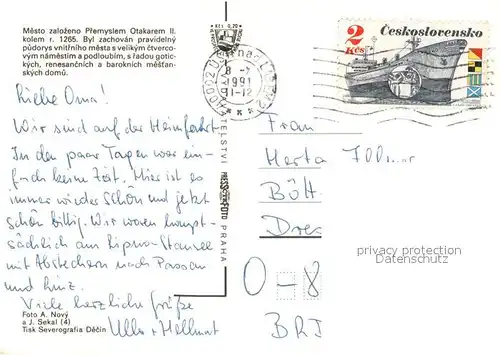 Město založeno Přemyslem Otakarem II.
kolem r. 1265. Byl zachován pravidelný
půdorys vnitřního města s velikým čtverco-
vým náměstím a podloubím, s řadou gotic-
kých, renesančních a barokních měšťan-
ských domů.
Liebe Oma!
Wir sind auf der Heimfahrt
In den paar Tagen war ein-
fach keine Zeit. Hier ist es
immer wieder schön und jetzt
schön billig. Wir waren haupt-
sächlich am Lipno-Stausee
mit Abstechern nach Passau
und Linz.
Viele herzliche Grüße
Ulla + Hellmut
Foto A. Nový
a J. Sekal (4)
Tisk Severografia Děčín
Kčs 0,70
PRESSFOTO PRAHA
8
1991
11-12
2
Kčs
Československo
Frau
Herta
Bött
Dres
privacy protection
Datenschutz
O-8
BRD